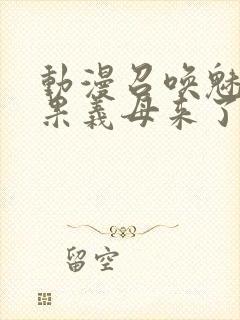 動漫召喚魅
果義母来了
留空